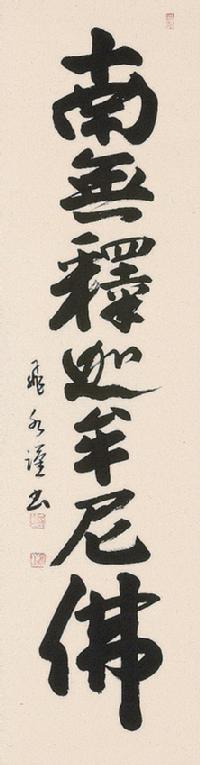 南無釋迦牟尼佛
飛水謹書